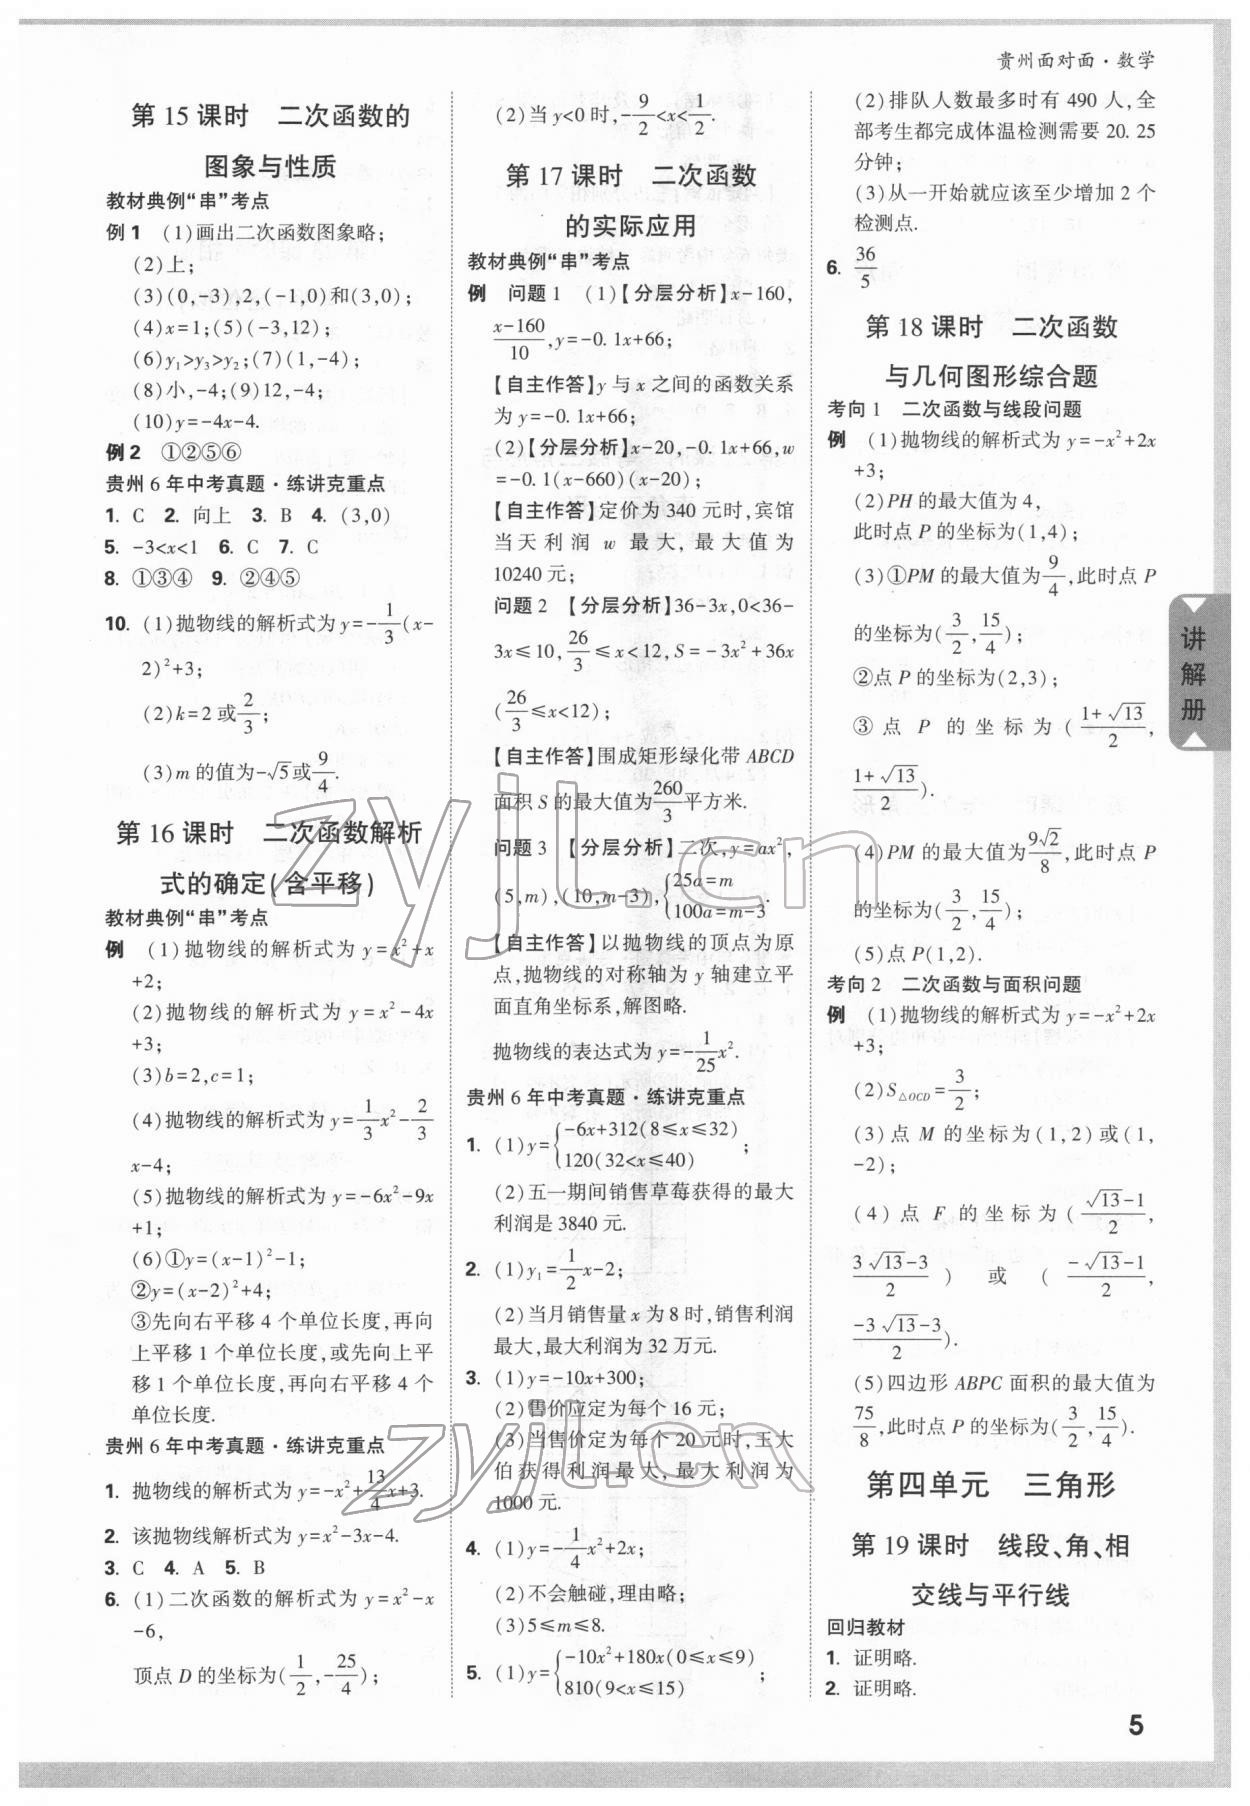 贵州面对面·数学
第15课时 二次函数的
图象与性质
教材典例“串”考点
例1 (1)画出二次函数图象略;
(2)上;
(3)(0,-3),2,(-1,0)和(3,0);
(4)x=1;(5)(-3,12);
(6)y₁>y₃>y₂;(7)(1,-4);
(8)小,-4;(9)12,-4;
(10)y=-4x-4.
例2 ①②⑤⑥
贵州6年中考真题·练讲克重点
1. C 2. 向上 3. B 4. (3,0)
5. -3<x<1 6. C 7. C
8. ①③④ 9. ②④⑤
10. (1)抛物线的解析式为y=-1/3(x-
2)²+3;
(2)k=2或2/3;
(3)m的值为-√5或9/4.
第16课时 二次函数解析
式的确定(含平移)
教材典例“串”考点
例 (1)抛物线的解析式为y=x²+x
+2;
(2)抛物线的解析式为y=x²-4x
+3;
(3)b=2,c=1;
(4)抛物线的解析式为y=1/3x²-2/3
x-4;
(5)抛物线的解析式为y=-6x²-9x
+1;
(6)①y=(x-1)²-1;
②y=(x-2)²+4;
③先向右平移4个单位长度,再向
上平移1个单位长度,或先向上平
移1个单位长度,再向右平移4个
单位长度.
贵州6年中考真题·练讲克重点
1. 抛物线的解析式为y=-x²+13/4x+3.
2. 该抛物线解析式为y=x²-3x-4.
3. C 4. A 5. B
6. (1)二次函数的解析式为y=x²-x
-6,
顶点D的坐标为(1/2,-25/4);
(2)当y<0时,-9/2<x<1/2.
第17课时 二次函数
的实际应用
教材典例“串”考点
例 问题1 (1)【分层分析】x-160,
(x-160)/10,y=-0.1x+66;
【自主作答】y与x之间的函数关系
为y=-0.1x+66;
(2)【分层分析】x-20,-0.1x+66,w
=-0.1(x-660)(x-20);
【自主作答】定价为340元时,宾馆
当天利润w最大,最大值为
10240元;
问题2 【分层分析】36-3x,0<36-
3x≤10,26/3≤x<12,S=-3x²+36x
(26/3≤x<12);
【自主作答】围成矩形绿化带ABCD
面积S的最大值为260/3平方米.
问题3 【分层分析】二次,y=ax²,
(5,m),(10,m-3),{25a=m
100a=m-3.
【自主作答】以抛物线的顶点为原
点,抛物线的对称轴为y轴建立平
面直角坐标系,解图略.
抛物线的表达式为y=-1/25x².
贵州6年中考真题·练讲克重点
1. (1)y={-6x+312(8≤x≤32)
120(32<x≤40);
(2)五一期间销售草莓获得的最大
利润是3840元.
2. (1)y₁=1/2x-2;
(2)当月销售量x为8时,销售利润
最大,最大利润为32万元.
3. (1)y=-10x+300;
(2)售价应定为每个16元;
(3)当售价定为每个20元时,王大
伯获得利润最大,最大利润为
1000元.
4. (1)y=-1/4x²+2x;
(2)不会触碰,理由略;
(3)5≤m≤8.
5. (1)y={-10x²+180x(0≤x≤9)
810(9<x≤15);
(2)排队人数最多时有490人,全
部考生都完成体温检测需要20.25
分钟;
(3)从一开始就应该至少增加2个
检测点.
6. 36/5
第18课时 二次函数
与几何图形综合题
考向1 二次函数与线段问题
例 (1)抛物线的解析式为y=-x²+2x
+3;
(2)PH的最大值为4,
此时点P的坐标为(1,4);
(3)①PM的最大值为9/4,此时点P
的坐标为(3/2,15/4);
②点P的坐标为(2,3);
③点P的坐标为((1+√13)/2,
(1+√13)/2).
(4)PM的最大值为9√2/8,此时点P
的坐标为(3/2,15/4);
(5)点P(1,2).
考向2 二次函数与面积问题
例 (1)抛物线的解析式为y=-x²+2x
+3;
(2)S△OCD=3/2;
(3)点M的坐标为(1,2)或(1,
-2);
(4)点F的坐标为((√13-1)/2,
(3√13-3)/2)或((-√13-1)/2,
(-3√13-3)/2).
(5)四边形ABPC面积的最大值为
75/8,此时点P的坐标为(3/2,15/4).
第四单元 三角形
第19课时 线段、角、相
交线与平行线
回归教材
1. 证明略.
2. 证明略.
讲解册
5
zyjl.cn
zyjl.cn